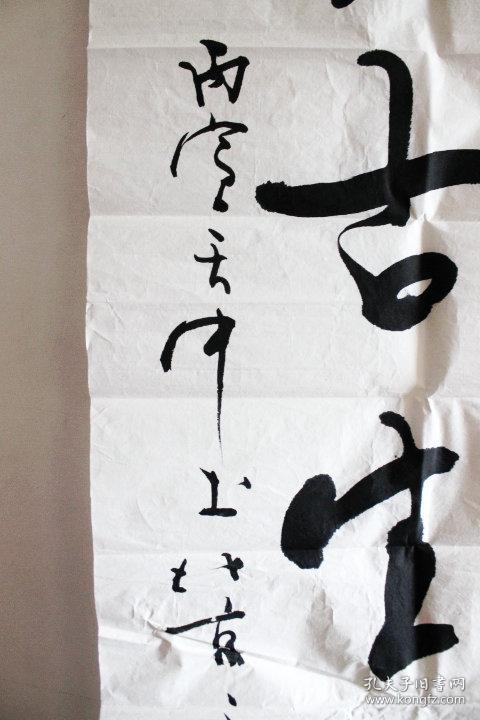 古生
丙寅中书北京
孔夫子旧书网
www.kongfz.com